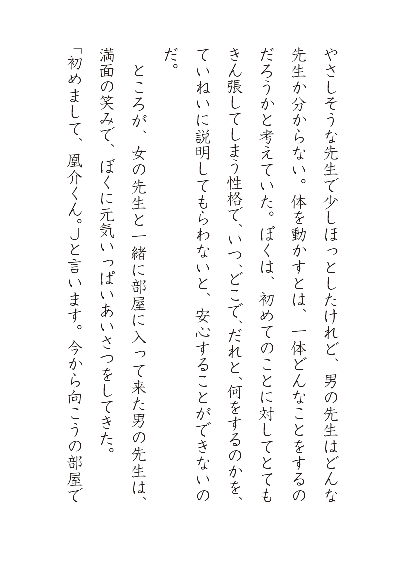 やさしそうな先生で少しほっとしたけれど、男の先生はどんな
先生か分からない。体を動かすとは、一体どんなことをするの
だろうかと考えていた。ぼくは、初めてのことに対してとても
きん張してしまう性格で、いつ、どこで、だれと、何をするのかを、
ていねいに説明してもらわないと、安心することができないの
だ。
ところが、女の先生と一緒に部屋に入って来た男の先生は、
満面の笑みで、ぼくに元気いっぱいあいさつをしてきた。
「初めまして、凰介くん。」と言います。今から向こうの部屋で